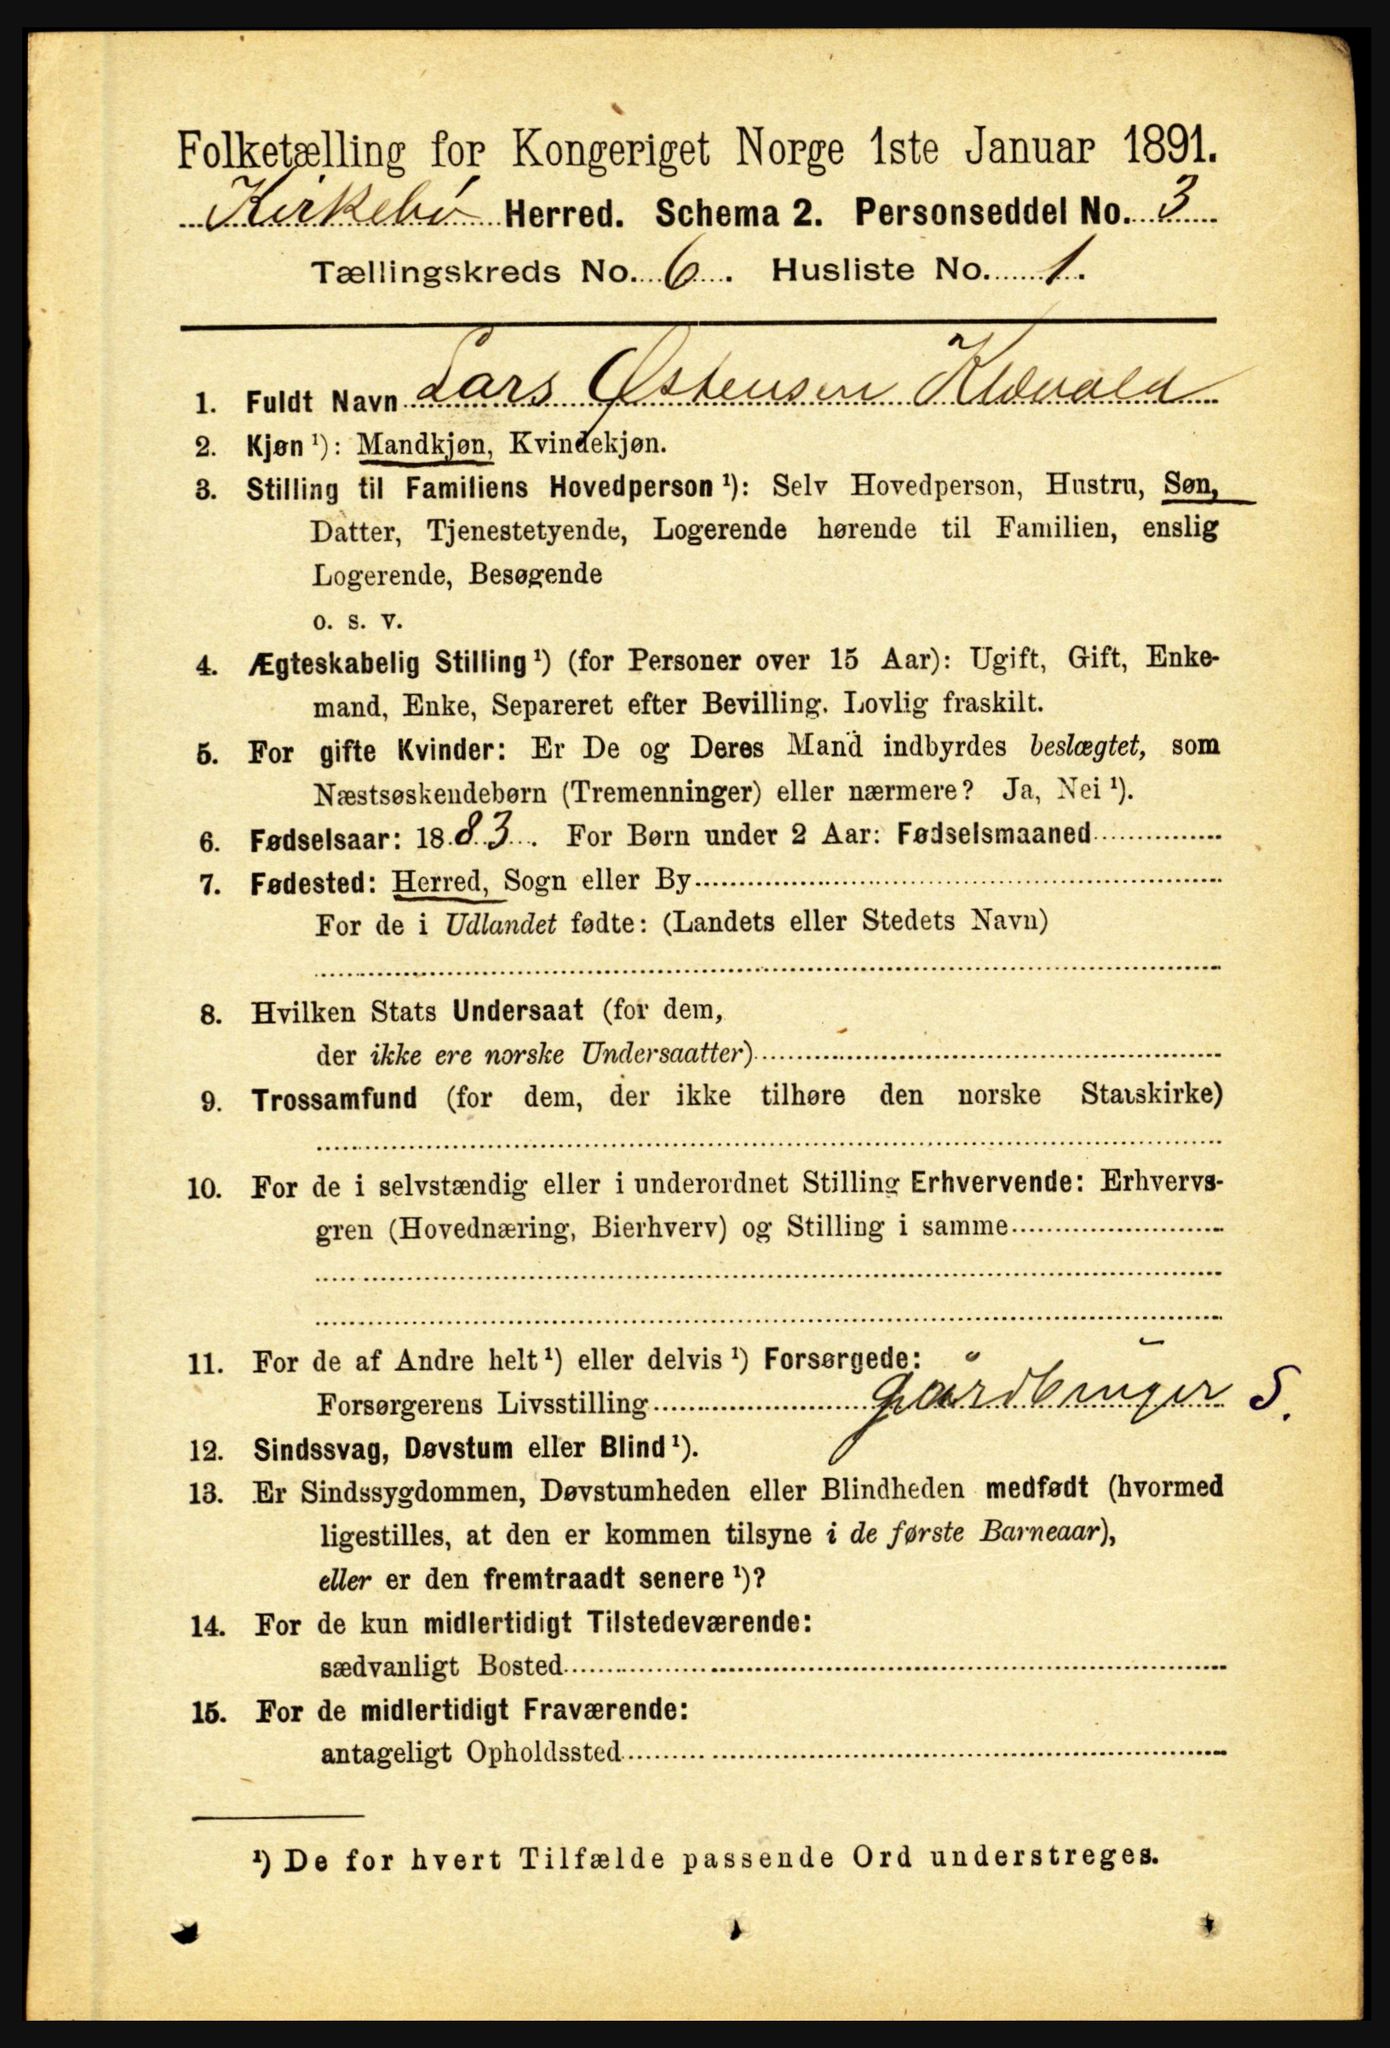 Folketælling for Kongeriget Norge 1ste Januar 1891.
Kirkebø Herred. Schema 2. Personseddel No. 3
Tællingskreds No. 6. Husliste No. 1.
1. Fuldt Navn Lars Østensen Klævold
2. Kjøn ¹): Mandkjøn, Kvindekjøn.
3. Stilling til Familiens Hovedperson ¹): Selv Hovedperson, Hustru, Søn,
Datter, Tjenestetyende, Logerende hørende til Familien, enslig
Logerende, Besøgende
o. s. v.
4. Ægteskabelig Stilling ¹) (for Personer over 15 Aar): Ugift, Gift, Enke-
mand, Enke, Separeret efter Bevilling. Lovlig fraskilt.
5. For gifte Kvinder: Er De og Deres Mand indbyrdes beslægtet, som
Næstsøskendebørn (Tremenninger) eller nærmere? Ja, Nei ¹).
6. Fødselsaar: 1883. For Børn under 2 Aar: Fødselsmaaned
7. Fødested: Herred, Sogn eller By
For de i Udlandet fødte: (Landets eller Stedets Navn)
8. Hvilken Stats Undersaat (for dem,
der ikke ere norske Undersaatter)
9. Trossamfund (for dem, der ikke tilhøre den norske Statskirke)
10. For de i selvstændig eller i underordnet Stilling Erhvervende: Erhvervs-
gren (Hovednæring, Bierhverv) og Stilling i samme
11. For de af Andre helt ¹) eller delvis ¹) Forsørgede:
Forsørgerens Livsstilling gårdbruger S.
12. Sindssvag, Døvstum eller Blind ¹).
13. Er Sindssygdommen, Døvstumheden eller Blindheden medfødt (hvormed
ligestilles, at den er kommen tilsyne i de første Barneaar),
eller er den fremtraadt senere ¹)?
14. For de kun midlertidigt Tilstedeværende:
sædvanligt Bosted
15. For de midlertidigt Fraværende:
antageligt Opholdssted
¹) De for hvert Tilfælde passende Ord understreges.